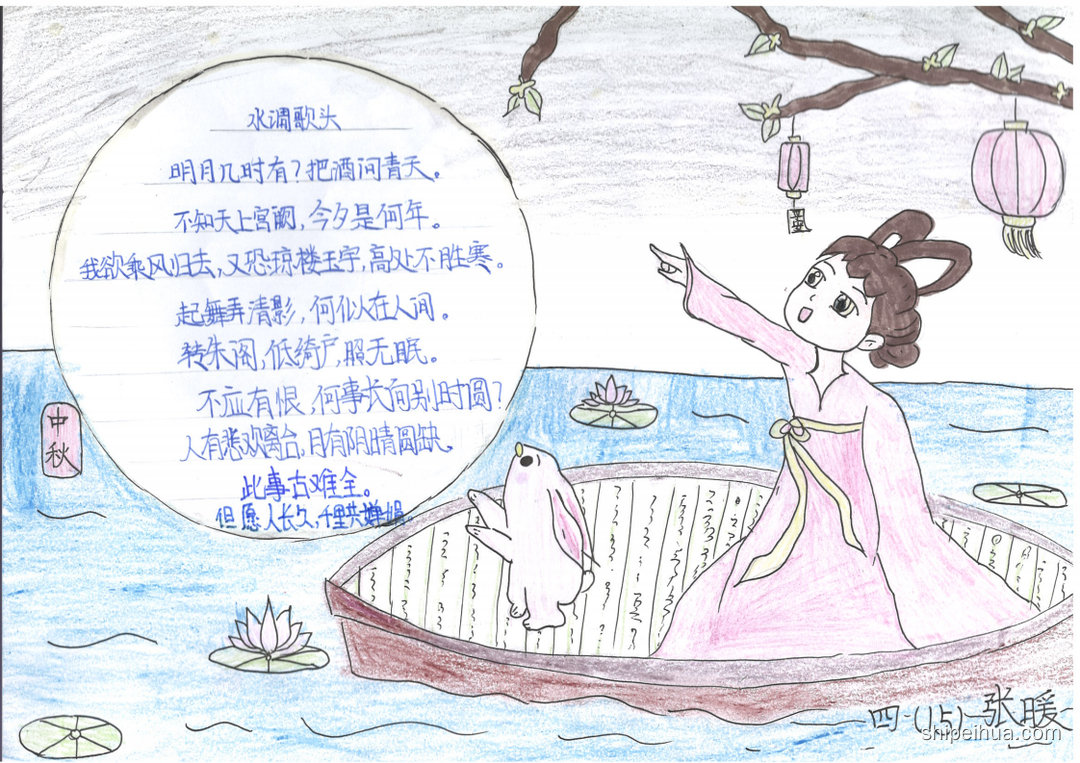 水调歌头
明月几时有?把酒问青天。
不知天上宫阙,今夕是何年。
我欲乘风归去,又恐琼楼玉宇,高处不胜寒。
起舞弄清影,何似在人间。
转朱阁,低绮户,照无眠。
不应有恨,何事长向别时圆?
人有悲欢离合,月有阴晴圆缺。
此事古难全。
但愿人长久,千里共婵娟。
中秋
四(15)张暖
shipeihua.com